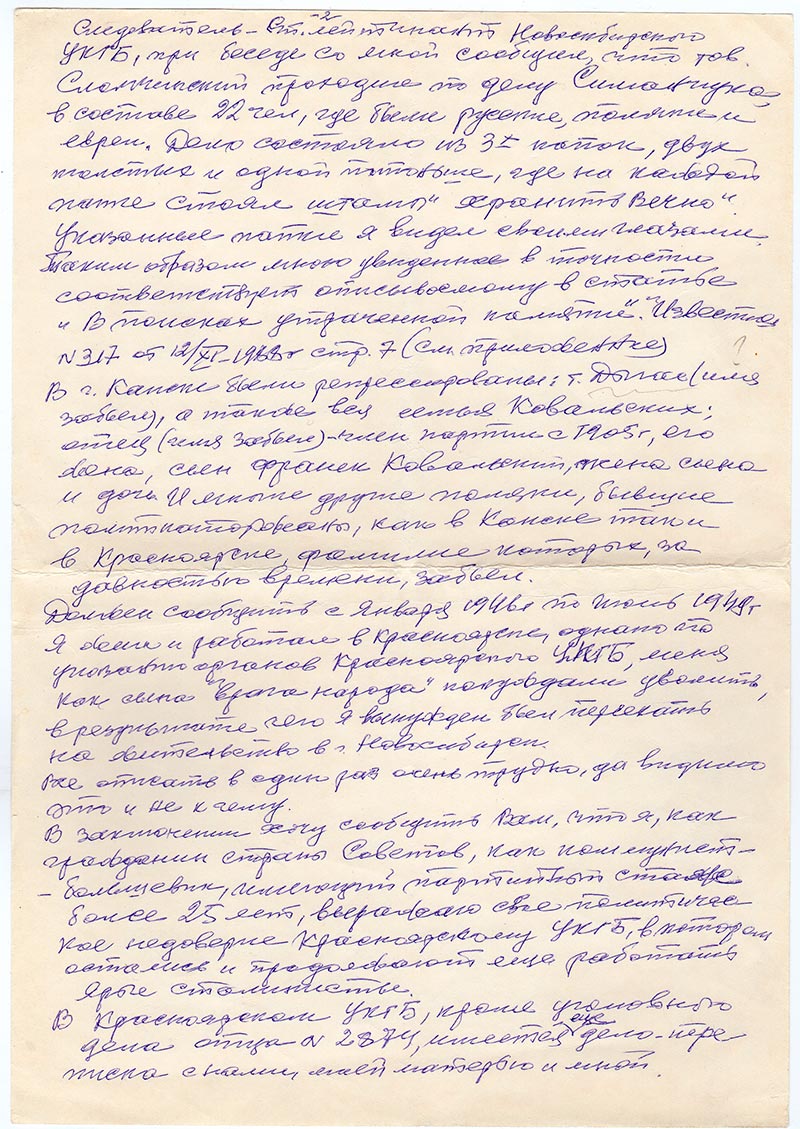 Следователь – Ст. лейтинант Новосибирского
УКГБ, при беседе со мной сообщил, что тов.
проходил по делу Симанчука,
в составе 22 чел, где были русские, поляки и
евреи. Дело состояло из 3х папок, двух
толстых и одной потоньше, где на каждой
папке стоял штамп "хранить Вечно".
Указанные папки я видел своими глазами.
Таким образом мною увиденное в точности
соответствует описываемому в статье
"В поисках утраченной памяти". "Известия
N 317 от 12/XI-1988г стр. 7 (см. приложение)
В г. Канске были репрессированы: т. (имя
забыл), а также вся семья Ковальских;
отец (имя забыл) – член партии с 1905г, его
жена, сын Франек Ковальский, жена сына
и дочь. И многие другие поляки, бывшие
политкаторжаны, как в Канске так и
в Красноярске, фамилие которых, за
давностью времени, забыл.
Должен сообщить с Января 1946г по Июль 1949г
Я жил и работал в Красноярске, однако по
указанию органов Красноярского УКГБ, меня
как сына "врага народа" понуждали уволить,
в результате чего я вынужден был переехать
на жительство в г. Новосибирск.
Все описать в один раз очень трудно, да видимо
это и не к чему.
В заключении хочу сообщить Вам, что я, как
гражданин страны Советов, как коммунист –
– большевик, имеющий партийный стаж
более 25 лет, выражаю свое политичес
кое недоверие Красноярскому УКГБ, в котором
остались и продолжают еще работать
ярые сталинисты.
В Красноярском УКГБ, кроме уголовного
дела отца N 2374, имеется еще дело-пере
писка с нами, моей матерью и мной.